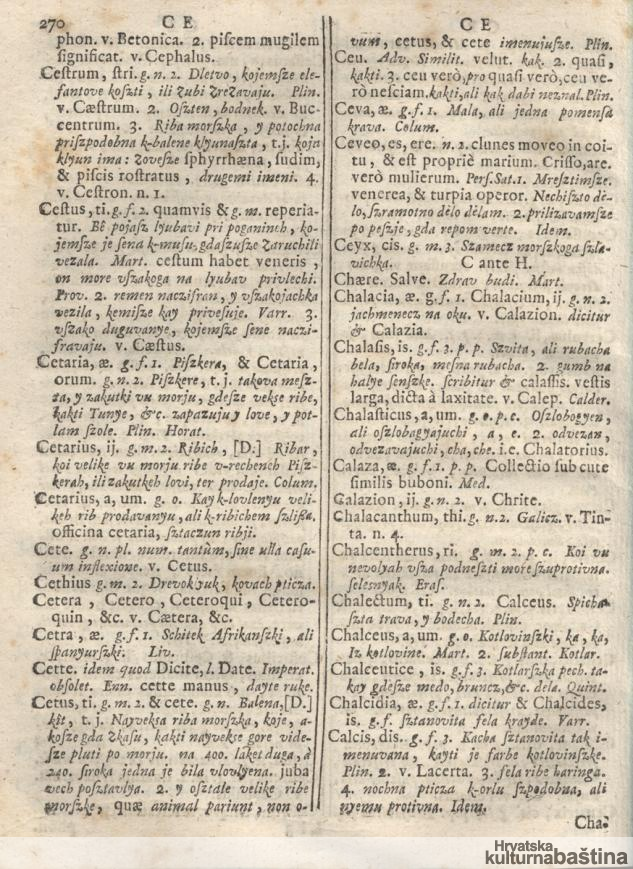 270 C E
phon. v. Betonica. 2. piscem mugilem
significat. v. Cephalus.
Cestrum, stri. g. n. 2. Dletvo, kojemsze ele-
fantove koszti, ili zubi zrezavaju. Plin.
v. Cæstrum. 2. Oszten, bodnek. v. Buc-
centrum. 3. Riba morszka, y potochna
priszpodobna k-balene klyunaszta, t. j. koja
klyun ima: zovesze sphyrrhæna, sudim,
& piscis rostratus, drugemi imeni. 4.
v. Cestron. n. 1.
Cestus, ti. g. f. 2. quamvis & g. m. reperia-
tur. Bê pojasz lyubavi pri poganineh, ko-
jemsze je sena k-musu, gdaszusze zaruchili
vezala. Mart. cestum habet veneris,
on more vszakoga na lyubav privlechi.
Prov. 2. remen naczifran, y vszakojachka
vezila, kemisze kay privesuje. Varr. 3.
vszako duguvanye, kojemsze sene naczi-
fravaju. v. Cæstus.
Cetaria, æ. g. f. 1. Piszkera, & Cetaria,
orum. g. n. 2. Piszkere, t. j. takova mesz-
ta, y zakutki vu morju, gdesze vekse ribe,
kakti Tunye, &c. zapazuju y love, y pot-
lam szole. Plin. Horat.
Cetarius, ij. g. m. 2. Ribich, [D.] Ribar,
koi velike vu morju ribe v-recheneh Pisz-
kerah, ili zakutkeh lovi, ter prodaje. Colum.
Cetarius, a, um. g. o. Kay k-lovlenyu veli-
keh rib prodavanyu, ali k-ribichem szlisa.
officina cetaria, sztaczun ribji.
Cete. g. n. pl. num. tantùm, sine ulla casu-
um inflexione. v. Cetus.
Cethius g. m. 2. Drevoklyuk, kovach pticza.
Cetera, Cetero, Ceteroqui, Cetero-
quin, &c. v. Cætera, &c.
Cetra, æ. g. f. 1. Schitek Afrikanszki, ali
spanyurszki. Liv.
Cette. idem quod Dicite, l. Date. Imperat.
obsolet. Enn. cette manus, dayte ruke.
Cetus, ti. g. m. 2. & cete. g. n. Balena, [D.]
kît, t. j. Nayveksa riba morszka, koje, a-
kosze gda zkasu, kakti nayvekse gore vide-
sze pluti po morju. na 400. laket duga, à
240. siroka jedna je bila vlovlyena. juba
vech posztavlya. 2. y osztale velike ribe
morszke, quæ animal pariunt, non o-
C E
vum, cetus, & cete imenujusze. Plin.
Ceu. Adv. Similit. velut. kak. 2. quasi,
kakti. 3. ceu verò, pro quasi verò, ceu ve-
rò nesciam. kakti, ali kak dabi neznal. Plin.
Ceva, æ. g. f. 1. Mala, ali jedna pomensa
krava. Colum.
Ceveo, es, ere. n. 2. clunes moveo in coi-
tu, & est propriè marium. Crisso, are.
verò mulierum. Pers. Sat. 1. Mresztimsze.
venerea, & turpia operor. Nechiszto dê-
lo, szramotno dêlo dêlam. 2. prilizavamsze
po peszje, gda repom verte. Idem.
Ceyx, cis. g. m. 3. Szamecz morszkoga szla-
vichka. C ante H.
Chære. Salve. Zdrav budi. Mart.
Chalacia, æ. g. f. 1. Chalacium, ij. g. n. 2.
jachmenecz na oku. v. Calazion. dicitur
& Calazia.
Chalasis, is. g. f. 3. p. p. Szvita, ali rubacha
bela, siroka, mesna rubacha. 2. gumb na
halye senszke. scribitur & calassis. vestis
larga, dicta à laxitate. v. Calep. Calder.
Chalasticus, a, um. g. o. p. c. Oszlobogyen,
ali oszlobagyajuchi, a, e. 2. odvezan,
odvezavajuchi, cha, che. i. e. Chalatorius.
Calaza, æ. g. f. 1. p. p. Collectio sub cute
similis buboni. Med.
Calazion, ij. g. n. 2. v. Chrite.
Chalacanthum, thi. g. n. 2. Galicz. v. Tin-
ta. n. 4.
Chalcentherus, ri. g. m. 2. p. c. Koi vu
nevolyah vsza podneszti more szuprotivna.
selesnyak. Eras.
Chalectum, ti. g. n. 2. Calceus. Spicha-
szta trava, y bodecha. Plin.
Chalceus, a, um. g. o. Kotlovinszki, ka, ka,
Iz kotlovine. Mart. 2. substant. Kotlar.
Chalceutice, is. g. f. 3. Kotlarszka pech. ta-
kay gdesze medo, bruncz, &c. dela. Quint.
Chalcidia, æ. g. f. 1. dicitur & Chalcides,
is. g. f. sztanovita fela krayde. Varr.
Calcis, dis. g. f. 3. Kacha sztanovita tak i-
menuvana, kayti je farbe kotlovinszke.
Plin. 2. v. Lacerta. 3. fela ribe haringa.
4. nochna pticza k-orlu szpodobna, ali
nyemu protivna. Idem.
Cha-
Hrvatska
kulturnabaština